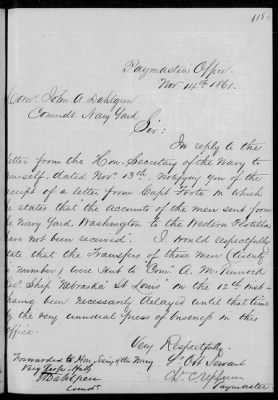 Paymasters Office.
Nov 14th 1861.
Comr John A. Dahlgren
Commdt Navy Yard
Sir:
In reply to the
letter from the Hon. Secretary of the Navy to
yourself, dated Nov. 13th, notifying you of the
receipt of a letter from Capt Foote in which
he states that the accounts of the men sent from
the Navy Yard, Washington to the Western Flotilla
have not been received. I would respectfully
state that the Transfers of these men (twenty
in number) were sent to Com. A. M.
Ship Nebraska St Louis on the 12th inst
having been necessarily delayed until that time
by the very unusual press of business in this
office.
Very Respectfully,
Yr Obt Servant
Paymaster
Forwarded to Hon. Secy of the Navy
Very Respectfully
Dahlgren
Comdt